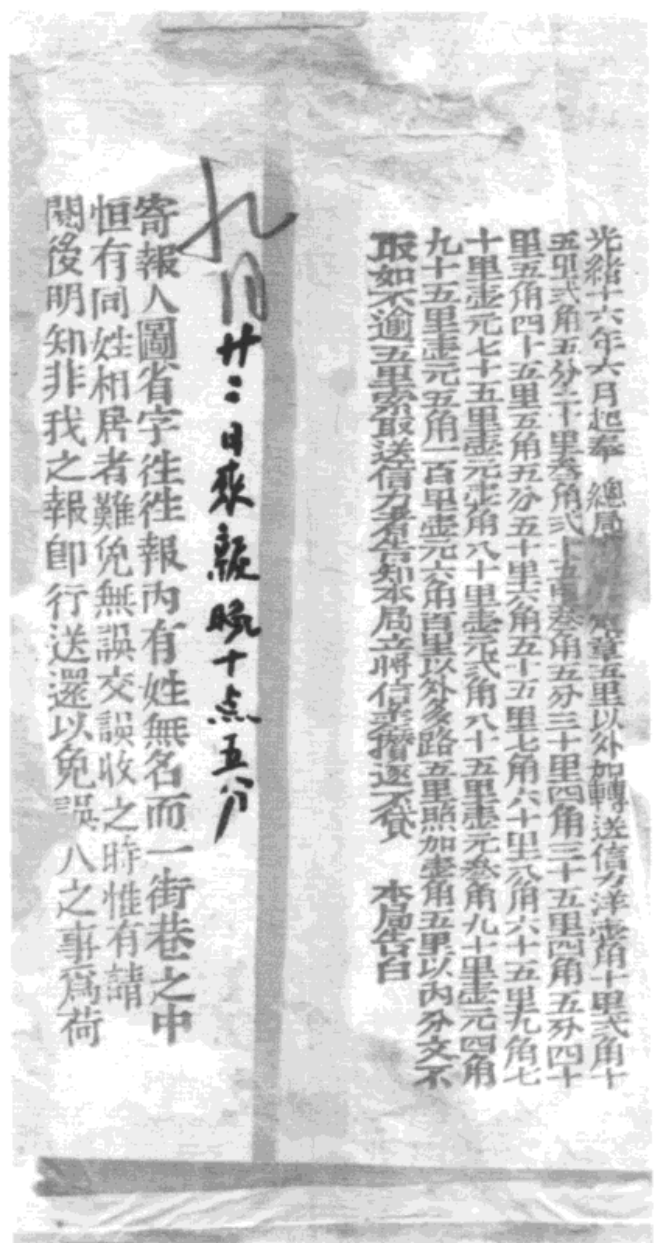 光緒十六年六月起奉 總局 章五里以外加轉送信力洋壹角十里弍角十
五里弍角五分二十里叁角弍十五里叁角五分三十里四角三十五里四角五分四十
里五角四十五里五角五分五十里六角五十五里七角六十里八角六十五里九角七
十里壹元七十五里壹元壹角八十里壹元弍角八十五里壹元叁角九十里壹元四角
九十五里壹元五角一百里壹元六角百里以外多路五里照加壹角五里以內分文不
取如不逾五里索取送信力者告知本局立將信差攆逐不貸 本局告白
九月廿二日來報晚十点五分
寄報人圖省字徃徃報內有姓無名而一街巷之中
恒有同姓相居者難免無誤交誤收之時惟有請
閱後明知非我之報卽行送還以免誤人之事爲荷